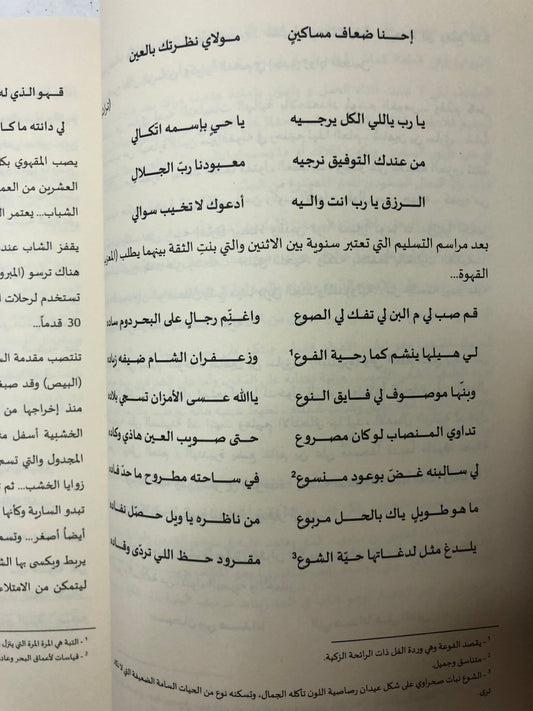 إحنا ضعاف مساكينٍ مولاي نظرتك بالعين
يا رب ياللي الكل يرجيه يا حي بإسمه اتّكالي
من عندك التوفيق نرجيه معبودنا ربّ الجلالِ
الرزق يا رب انت واليه أدعوك لا تخيب سوالي
بعد مراسم التسليم التي تعتبر سنوية بين الاثنين والتي بنتِ الثقة بينهما يطلب
القهوة...
قم صب لي م البن لي تفك لي الصوع واغنِّم رجالٍ على البحر دوم
لي هيلها ينشم كما رحية الفوع¹ وزعفران الشام ضيفه
وبنّها موصوف لي فايق النوع ياالله عسى الأمزان تسجي
تداوي المنصاب لو كان مصروع حتى صويب العين هاذي وكاده
لي سالبنه غضّ بوعود منسوع² في ساحته مطروح ما حدّ
ما هو طويلٍ ياك بالحل مربوع من ناظره يا ويل حصّل
يلدغ مثل لدغاتها حيّة الشوع³ مقرود حظ اللي تردّى
¹ - يقصد الفوعة وهي وردة الفل ذات الرائحة الزكية.
² - متناسق وجميل.
³ - الشوع نبات صحراوي على شكل عيدان رصاصية اللون تأكله الجمال، وتسكنه نوع من الحيات السامة الضعيفة التي لا تكاد
ترى.
قهو الذي له
لي دانته ما كا
يصب المقهوي بكل
العشرين من العم
الشباب... يعتمر ال
يقفز الشاب عند
هناك ترسو (المبرو
تستخدم لرحلات ا
30 قدماً...
تنتصب مقدمة الم
(البيص) وقد صبغ
منذ إخراجها من
الخشبية أسفل مت
المجدول والتي تسم
زوايا الخشب... ثم ت
تبدو السارية وكأنها
أيضاً أصغر... وتس
يربط ويكسى بها الش
ليتمكن من الامتلاء
¹ - التبة هي المرة المرة التي ينزل
² - قياسات لأعماق البحر وعاد